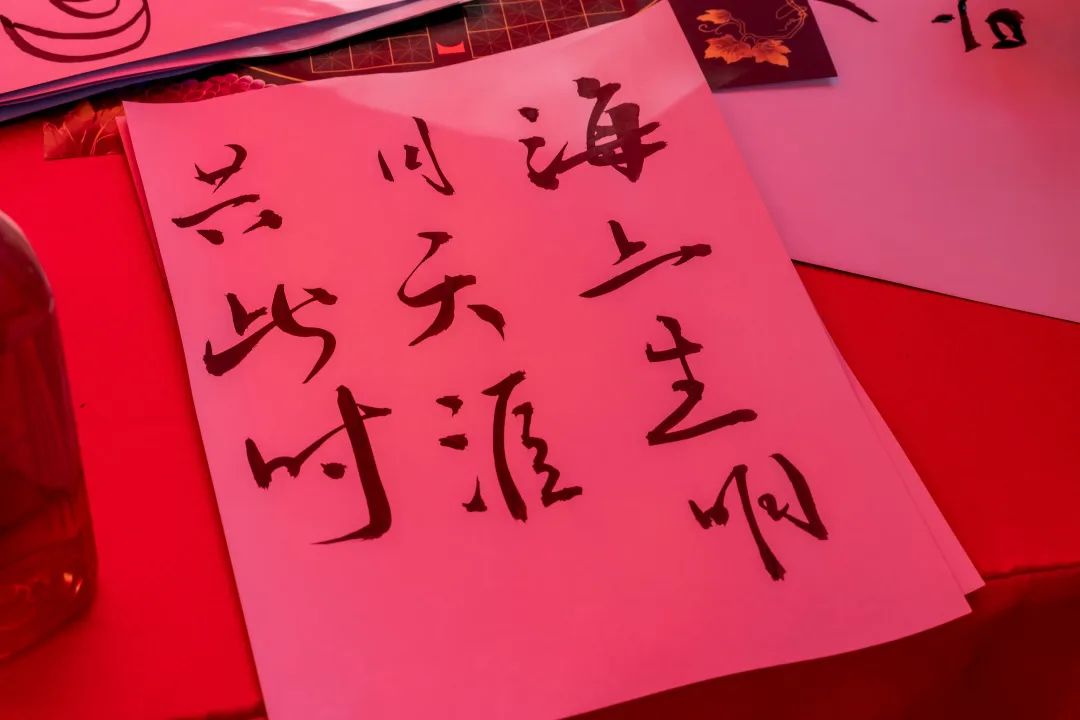 海上生明
月天涯
共此时